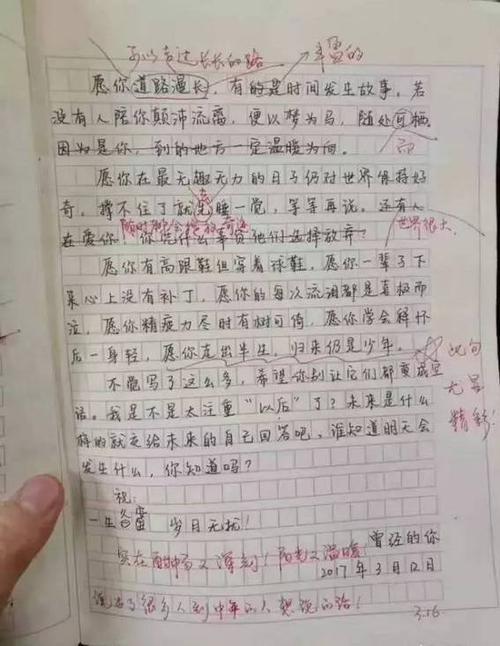 可以走过长长的路
丰盈的
愿你道路漫长，有的是时间发生故事。若
没有人陪你颠沛流离，便以梦为马，随处可栖。
因为是你，到的地方一定温暖为向。
愿你在最无趣无力的日子仍对世界保持好
奇。撑不住了就先睡一觉，等等再说。还有人
世界很大，
在爱你，你凭什么事替他们选择放弃？
愿你有高跟鞋但穿着球鞋，愿你一辈子下
来心上没有补丁，愿你的每次流泪都是喜极而
泣，愿你精疲力尽时有树可倚，愿你学会释怀
后一身轻，愿你走出半生，归来仍是少年。
此句
尤显
精彩！
不觉写了这么多，希望你别让它们都变成空
话。我是不是太注重“以后”了？未来是什么
样的就交给未来的自己回答吧，谁知道明天会
发生什么，你知道吗？
祝：
一生 岁月无扰！
曾经的你
2017年3月12日
实在酣畅又深刻！阳光又温暖
说出了很多人到中年的人想说的话！
3.16